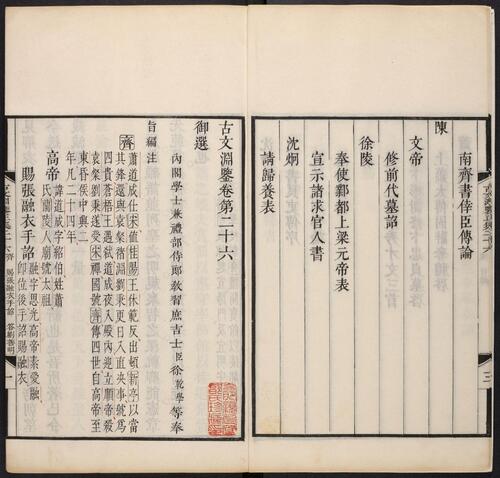 南齊書倖臣傳論
陳
文帝
修前代墓詔
徐陵
奉使鄴都上梁元帝表
宣示諸求官人書
沈炯
請歸養表
三
古文淵鑒卷第二十六
御選
內閣學士兼禮部侍郎教習庶吉士臣徐乾學等奉
旨編注
齊 蕭道成仕宋值桂陽王休範反出頓新亭以當
其鋒還與袁粲褚淵劉秉更日入直決事號為
四貴蒼梧王遇弒道成夜入殿內迎立順帝殺
袁粲劉秉遂受宋禪國號齊傳四世自高帝至
東昏侯中興二
年凡二十四年
高帝 諱道成字紹伯姓蕭
氏南蘭陵人廟號太祖
賜張融衣手詔 融字思光高帝素愛融
即位後手詔賜融衣
一